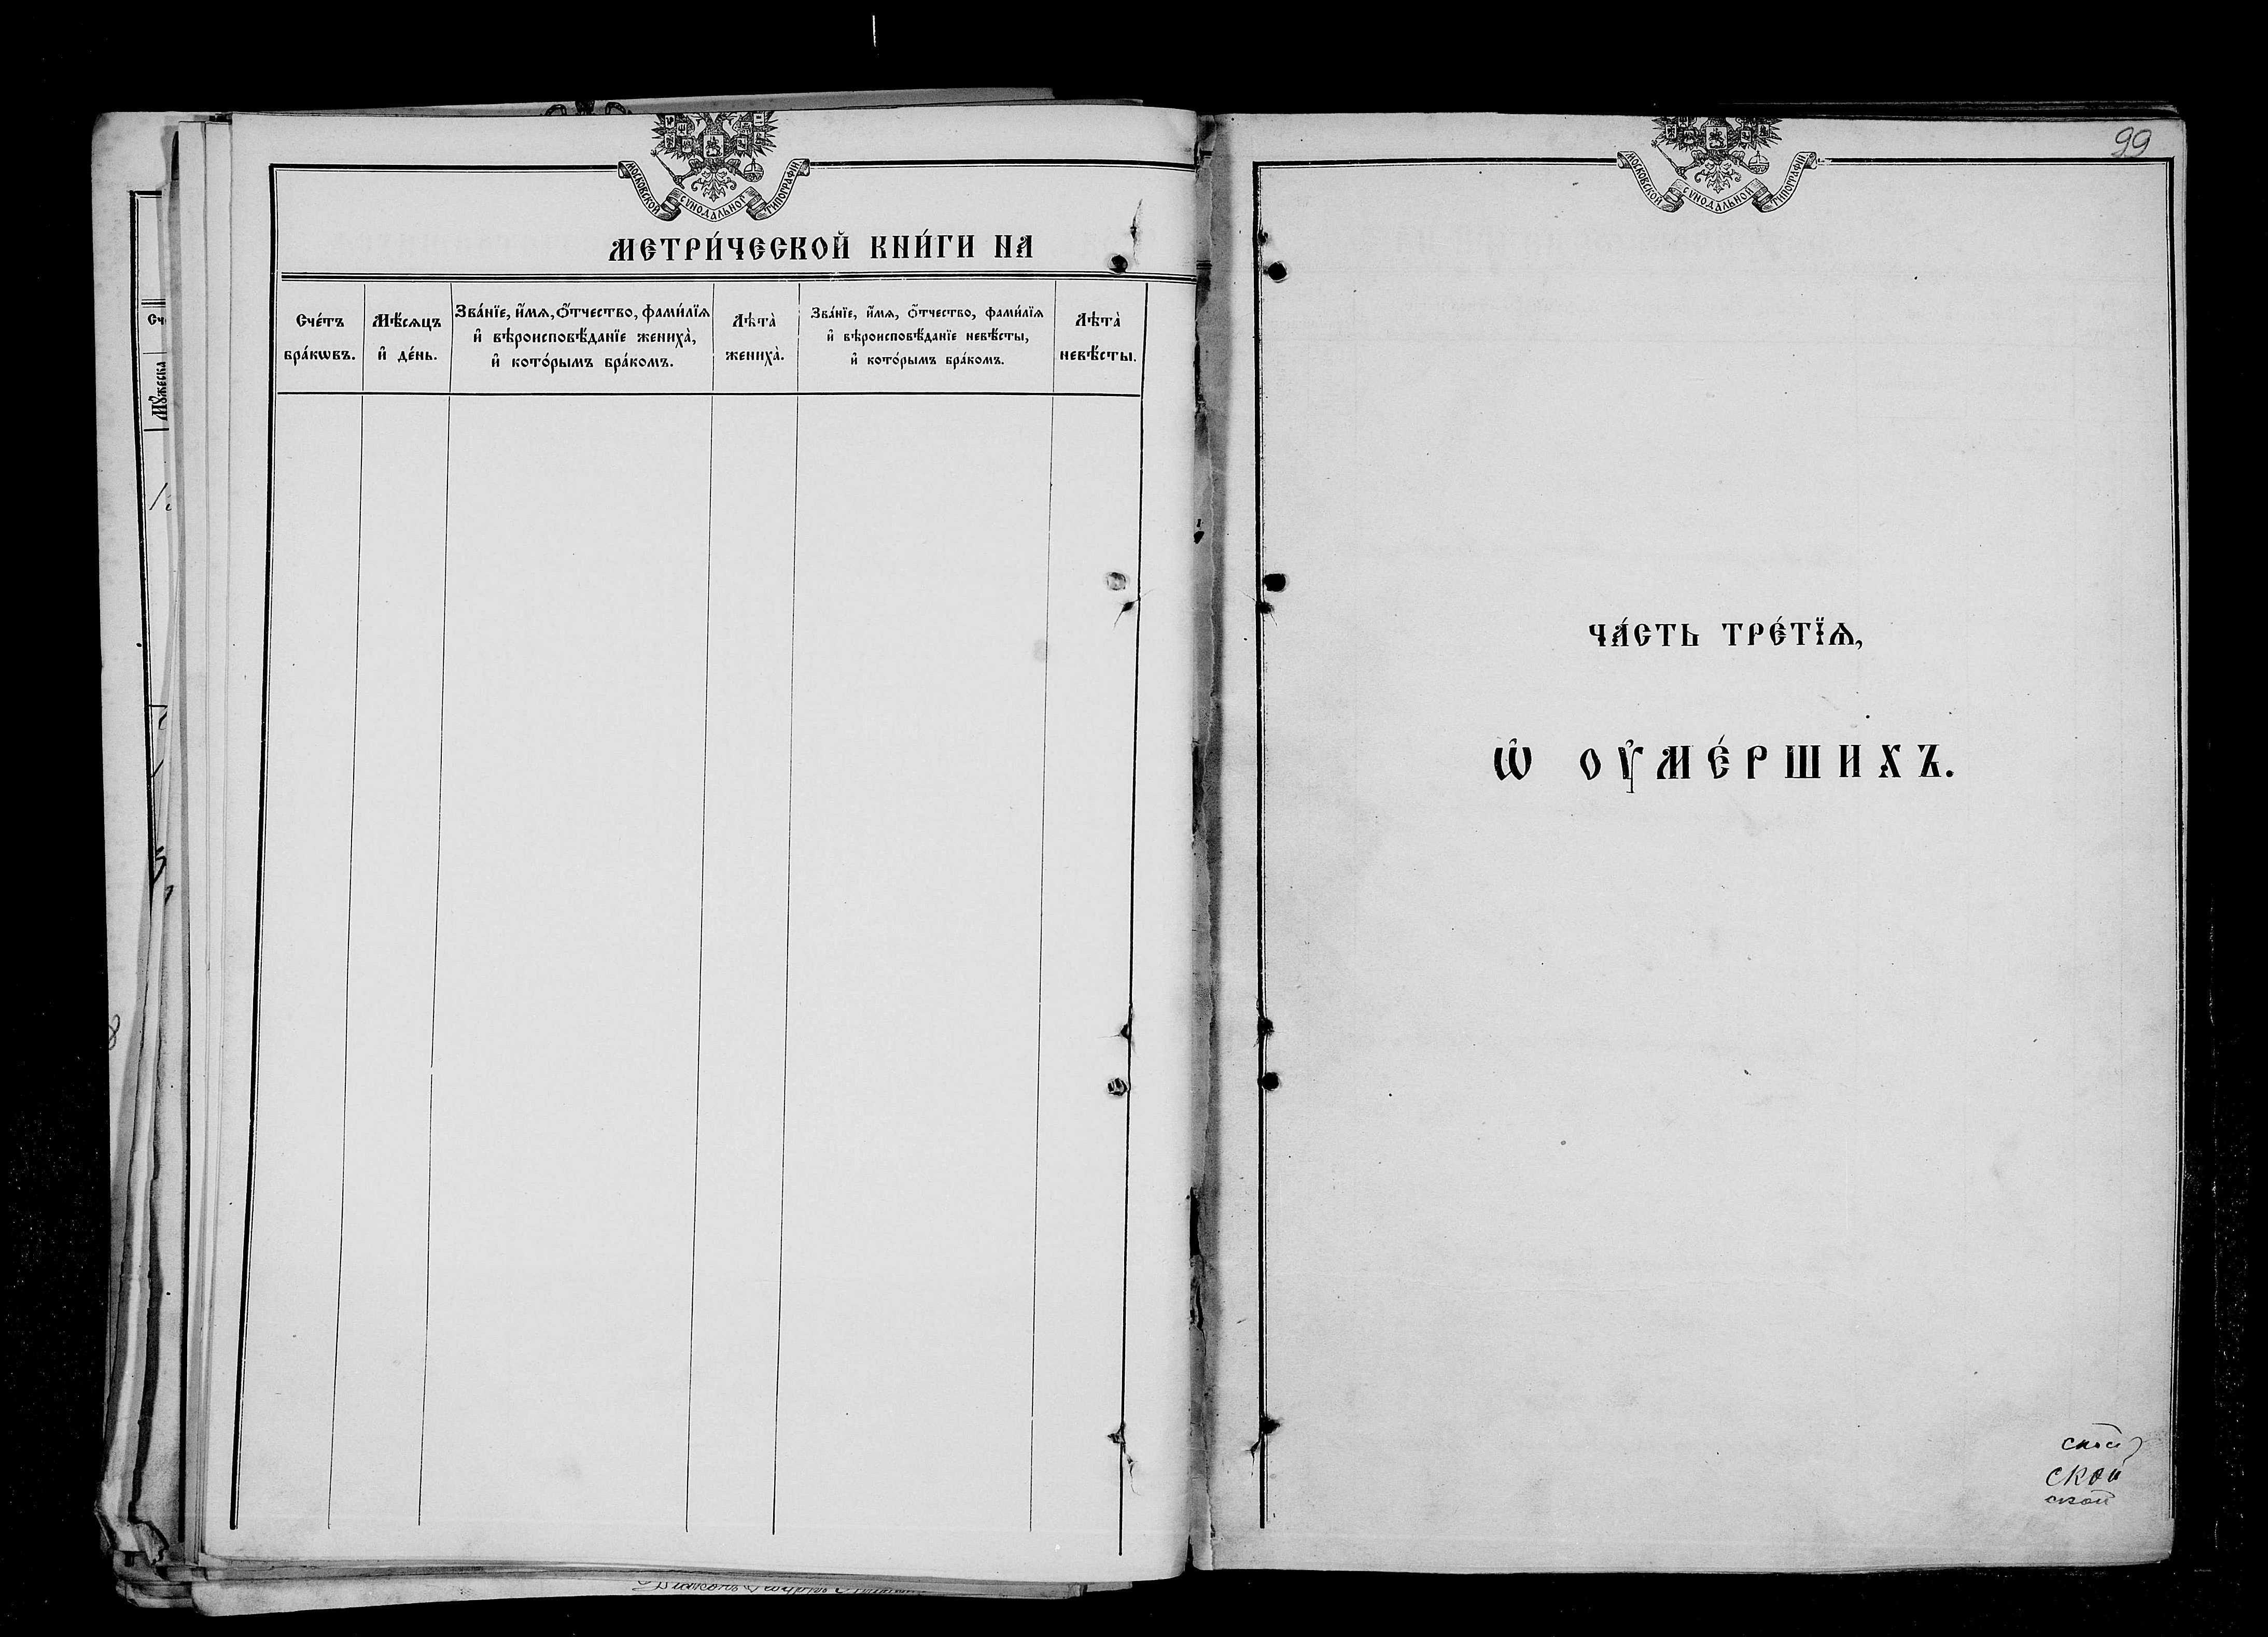 МОСКОВСКОЙ СѴНОДАЛЬНОЙ ТИПОГРАФІИ
МЕТРИ́ЧЕСКОЙ КНИ́ГИ НА
Сче́тъ
бра́кѡвъ.
Мѣ́сяцъ
и҆ де́нь.
Зва́нїе, и҆́мя, ѻ҆́тчество, фами́лїя
и҆ вѣроисповѣ́данїе жениха̀,
и҆ кото́рымъ бра́комъ.
Лѣта̀
жениха̀.
Зва́нїе, и҆́мя, ѻ҆́тчество, фами́лїя
и҆ вѣроисповѣ́данїе невѣ́сты,
и҆ кото́рымъ бра́комъ.
Лѣта̀
невѣ́сты.
Мꙋжеска
99
МОСКОВСКОЙ СѴНОДАЛЬНОЙ ТИПОГРАФІИ
ЧА́СТЬ ТРЕ́ТЇѦ,
Ѡ҆ ОУ҆МЕ́РШИХЪ.
ской
ской
ской